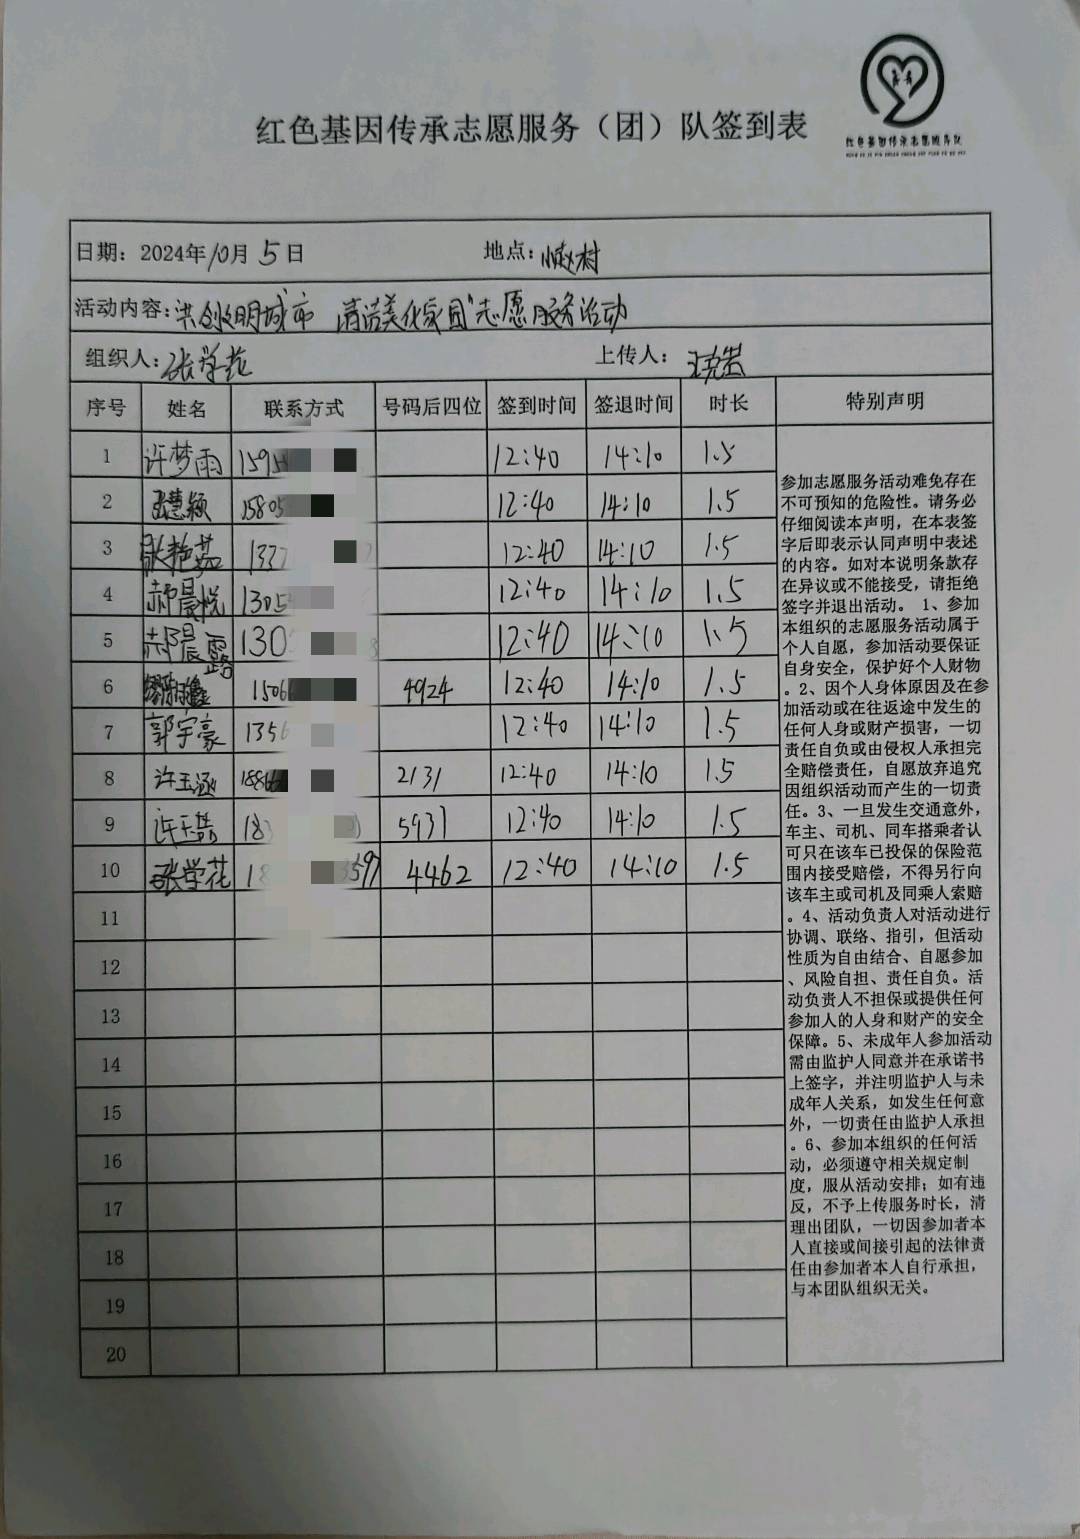 红色基因传承志愿服务队
红色基因传承志愿服务（团）队签到表
日期：2024年10月5日 地点：小赵村
活动内容：共创文明城市 清洁美化家园"志愿服务活动
组织人：张学花 上传人：
序号 姓名 联系方式 号码后四位 签到时间 签退时间 时长 特别声明
1 许梦雨 1595 12:40 14:10 1.5
2 张慧颖 15805 12:40 14:10 1.5
3 张艳茹 1337 12:40 14:10 1.5
4 郝晨悦 1305 12:40 14:10 1.5
5 郝晨露 130 12:40 14:10 1.5
6 1506 4924 12:40 14:10 1.5
7 郭宇豪 1356 12:40 14:10 1.5
8 许玉涵 1886 2131 12:40 14:10 1.5
9 许玉喆 18 5931 12:40 14:10 1.5
10 张学花 18 3597 4462 12:40 14:10 1.5
11
12
13
14
15
16
17
18
19
20
参加志愿服务活动难免存在
不可预知的危险性。请务必
仔细阅读本声明，在本表签
字后即表示认同声明中表述
的内容。如对本说明条款存
在异议或不能接受，请拒绝
签字并退出活动。 1、参加
本组织的志愿服务活动属于
个人自愿，参加活动要保证
自身安全，保护好个人财物
。2、因个人身体原因及在参
加活动或在往返途中发生的
任何人身或财产损害，一切
责任自负或由侵权人承担完
全赔偿责任，自愿放弃追究
因组织活动而产生的一切责
任。3、一旦发生交通意外，
车主、司机、同车搭乘者认
可只在该车已投保的保险范
围内接受赔偿，不得另行向
该车主或司机及同乘人索赔
。4、活动负责人对活动进行
协调、联络、指引，但活动
性质为自由结合、自愿参加
、风险自担、责任自负。活
动负责人不担保或提供任何
参加人的人身和财产的安全
保障。5、未成年人参加活动
需由监护人同意并在承诺书
上签字，并注明监护人与未
成年人关系，如发生任何意
外，一切责任由监护人承担
。6、参加本组织的任何活
动，必须遵守相关规定制
度，服从活动安排；如有违
反，不予上传服务时长，清
理出团队，一切因参加者本
人直接或间接引起的法律责
任由参加者本人自行承担，
与本团队组织无关。